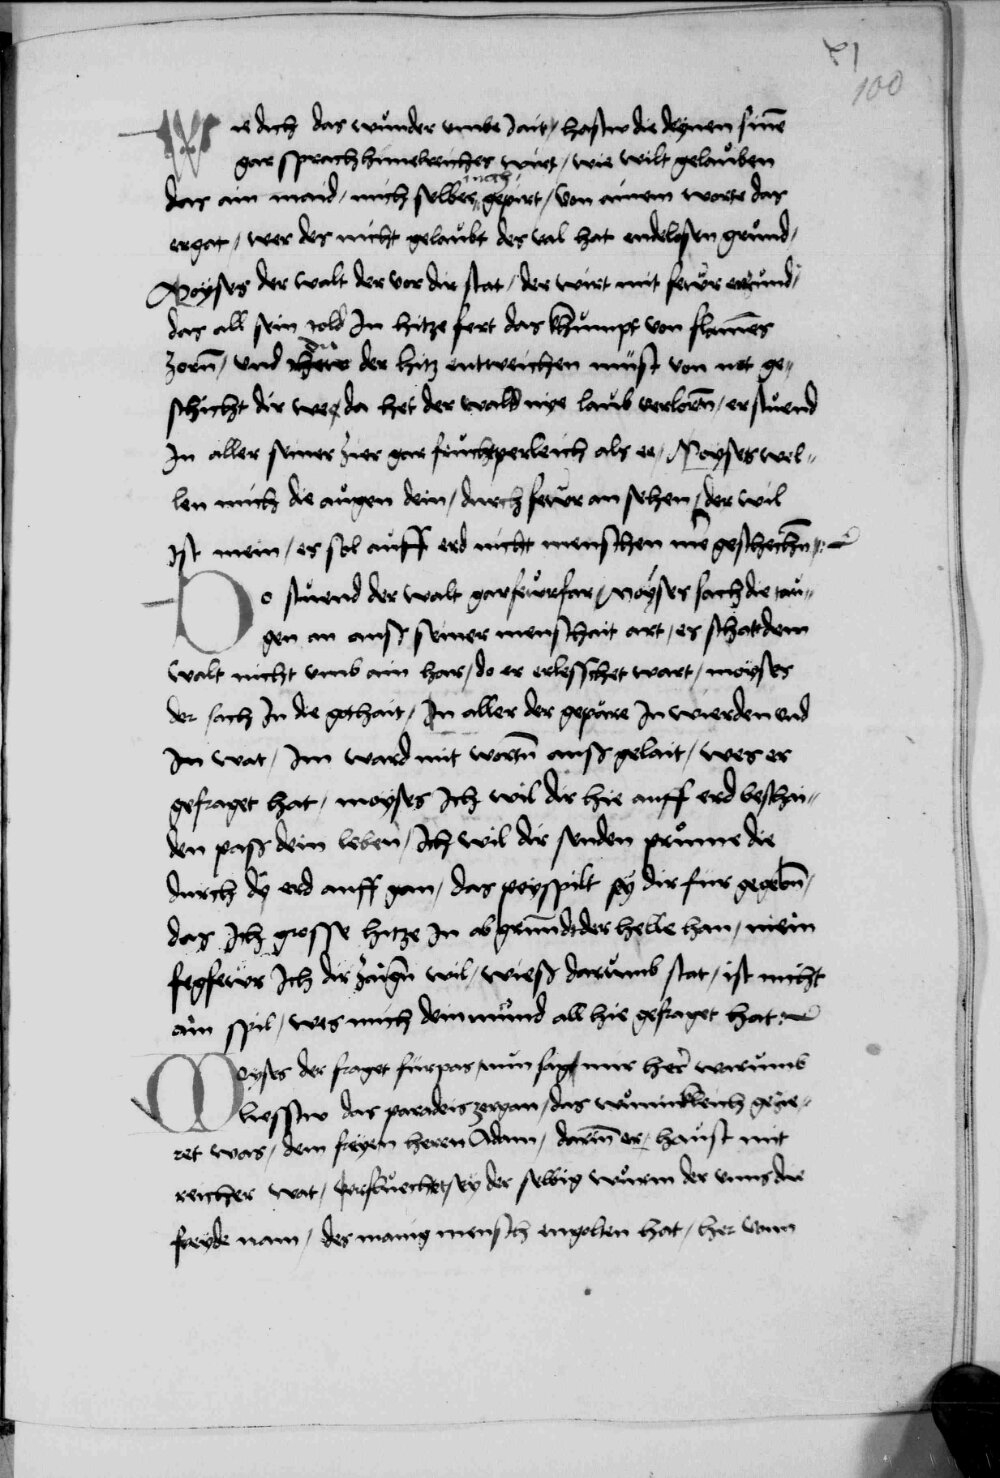 XI
100
Wie dich das wunder umbe Jait / hastw die deynen sine
gar sprach himelreiches wirt / wie wilt gelauben
noch
das ain maid / mich selber gepirt / von ainem worte das
ergat / wer des nicht gelaubt des val hat endelosen grund /
Moyses der walt der vor dir stat / der wirt mit fewr enzund /
das all sein told In hitze fert das von flames
zorn / und der hitz entweichen muest von not ge„
schicht dir wee da het der wald nye laub verlorn / er stuend
In aller seiner zier gar feuchtperleich als ee / Moyses wel„
len mich die augen dein / durch fewr an sehen / der wil
Ist mein / es sol auff erd nicht menschen me geschechn
Do stuend der walt gar fewrfar / Moyses sach die tau„
gen an auss seiner menschait art / es schatt dem
walt nicht umb ain har / do er erlesschet wart / moyses
der sach In die gothait / In aller der gepäre In wierden und
In wat / Im ward mit wortn auss gelait / wes er
gefraget hat / moyses Ich wil dir hie auff erd beschai„
den pass dein leben / Ich wil dir senden prunne die
durch dy erd auff gan / das peyspilt sy dir fur gegebn /
das Ich grosse hitze In abgrundt der helle han / mein
fegfewr Ich dir zaign wil / wiess darumb stat / ist nicht
ain spil / wes mich dein mund all hie gefraget hat
Moyses der fraget fürpas / nun sag mir her warumb
liesstw das paradeis zergan / das wunnikleich gezie„
ret was / dem freyen heren Adam / darin er haust mit
reicher wat / verfluechet sy der selbig wurm der unns die
freyde nam / des manig mensch engolten hat / her vonn